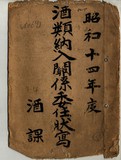 昭和十四年度
酒類納入關係委任狀寫
酒課